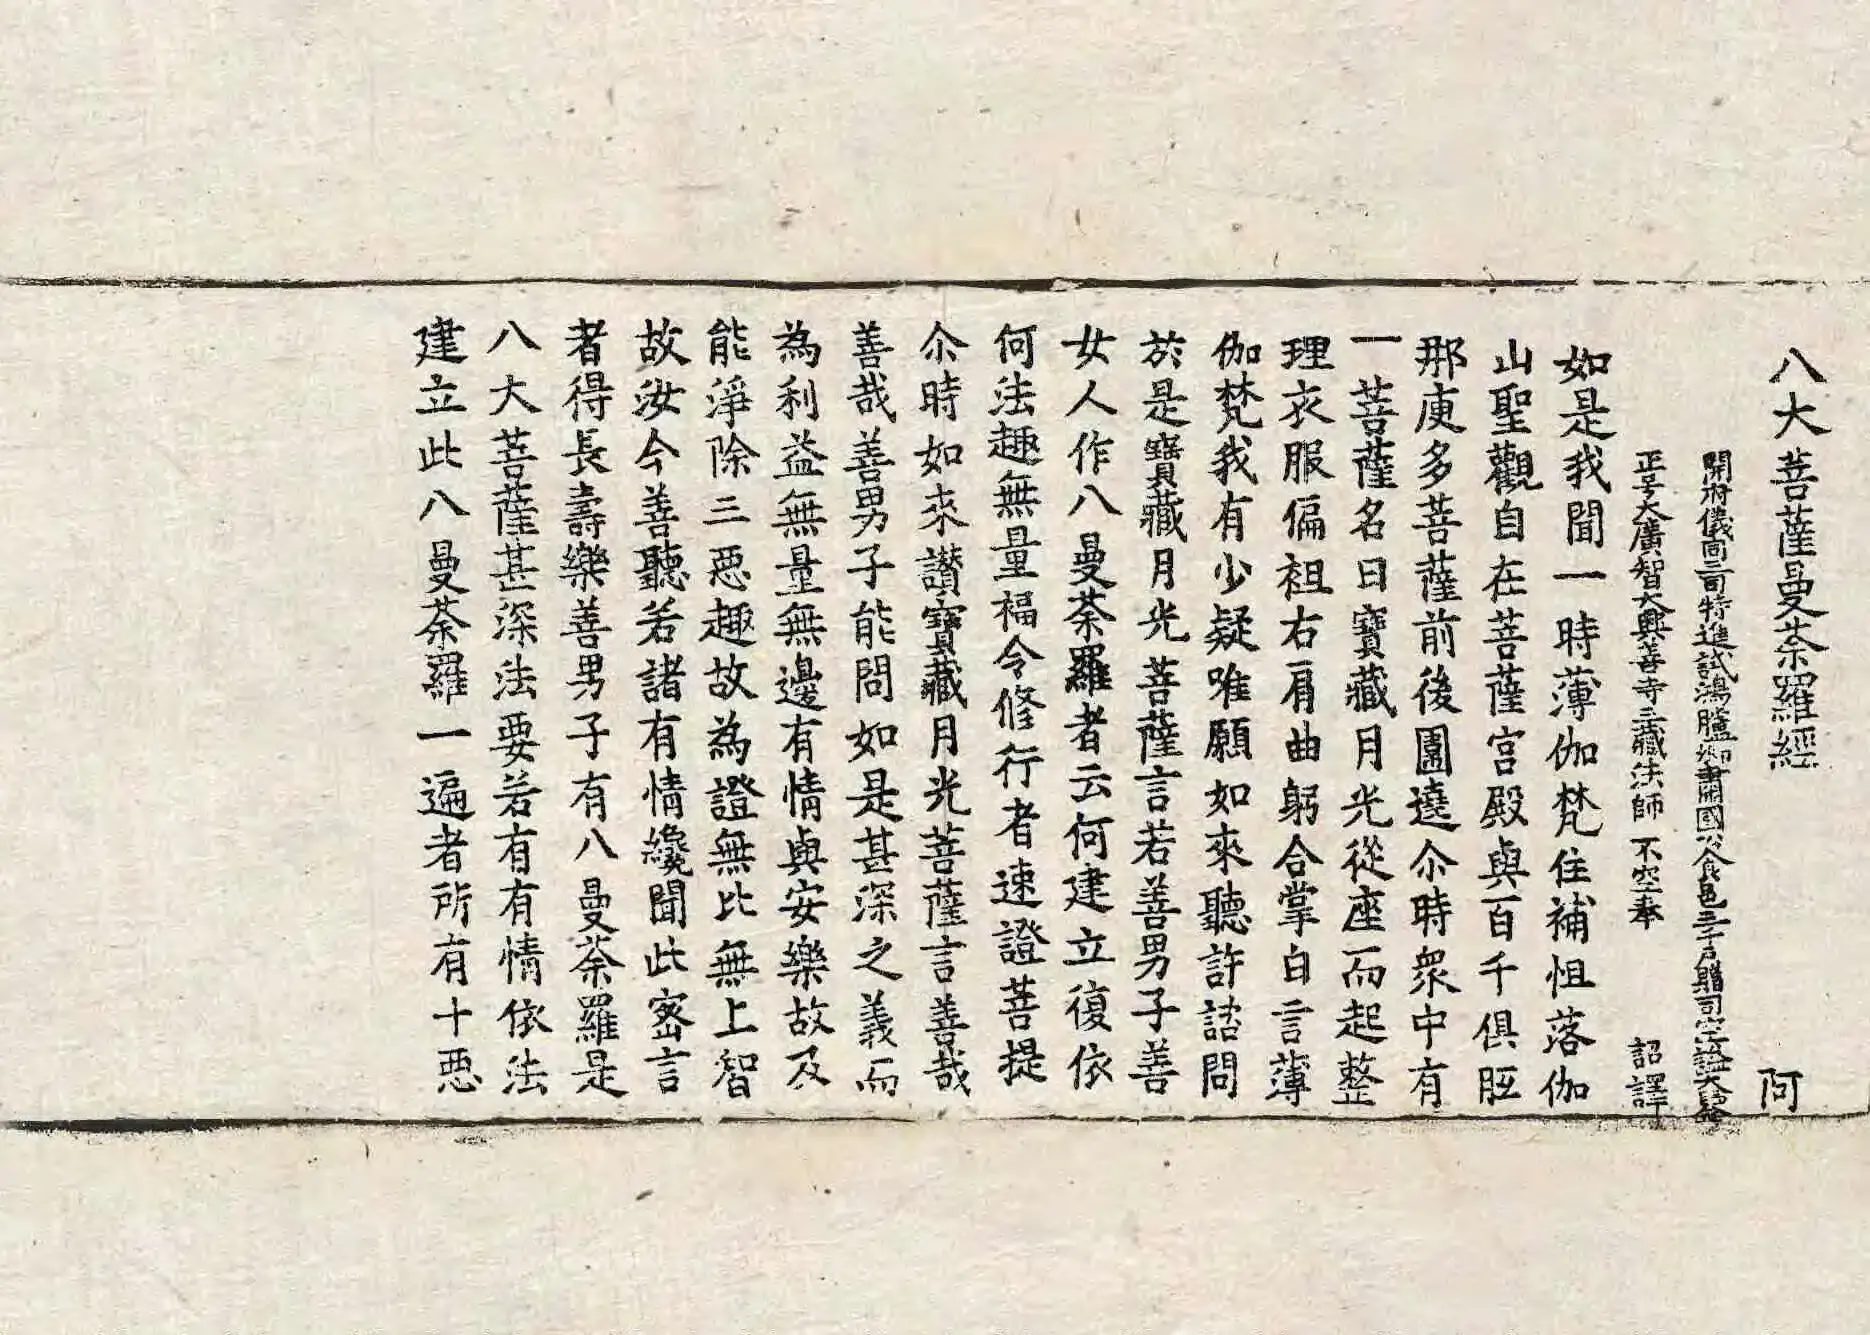 八大菩薩曼荼羅經 阿
開府儀同三司特進試鴻臚卿肅國公食邑三千戶贈司空謚大辯
正号大廣智大興善寺三藏法師 不空奉 詔譯
如是我聞一時薄伽梵住補怛落伽
山聖觀自在菩薩宮殿與百千俱胝
那庾多菩薩前後圍遶尒時衆中有
一菩薩名曰寶藏月光從座而起整
理衣服偏袒右肩曲躬合掌白言薄
伽梵我有少疑唯願如來聽許諮問
於是寶藏月光菩薩言若善男子善
女人作八曼荼羅者云何建立復依
何法趣無量福令修行者速證菩提
尒時如來讃寶藏月光菩薩言善哉
善哉善男子能問如是甚深之義而
為利益無量無邊有情與安樂故及
能淨除三惡趣故為證無比無上智
故汝今善聽若諸有情纔聞此密言
者得長壽樂善男子有八曼荼羅是
八大菩薩甚深法要若有有情依法
建立此八曼荼羅一遍者所有十惡